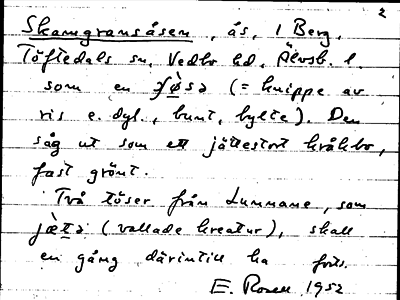 2
Skamgransåsen, ås, i Berg,
Töftedals sn, Vedbo hd, Älvsb. l.
som en jø̀sə (= knippe av
ris e. dyl., bunt, bylte). Den
såg ut som ett jättestort kråkbo,
fast grönt.
Två töser från Lunnane, som
jæ̀tə (vallade kreatur), skall
en gång därintill ha forts.
E. Rosell 1952